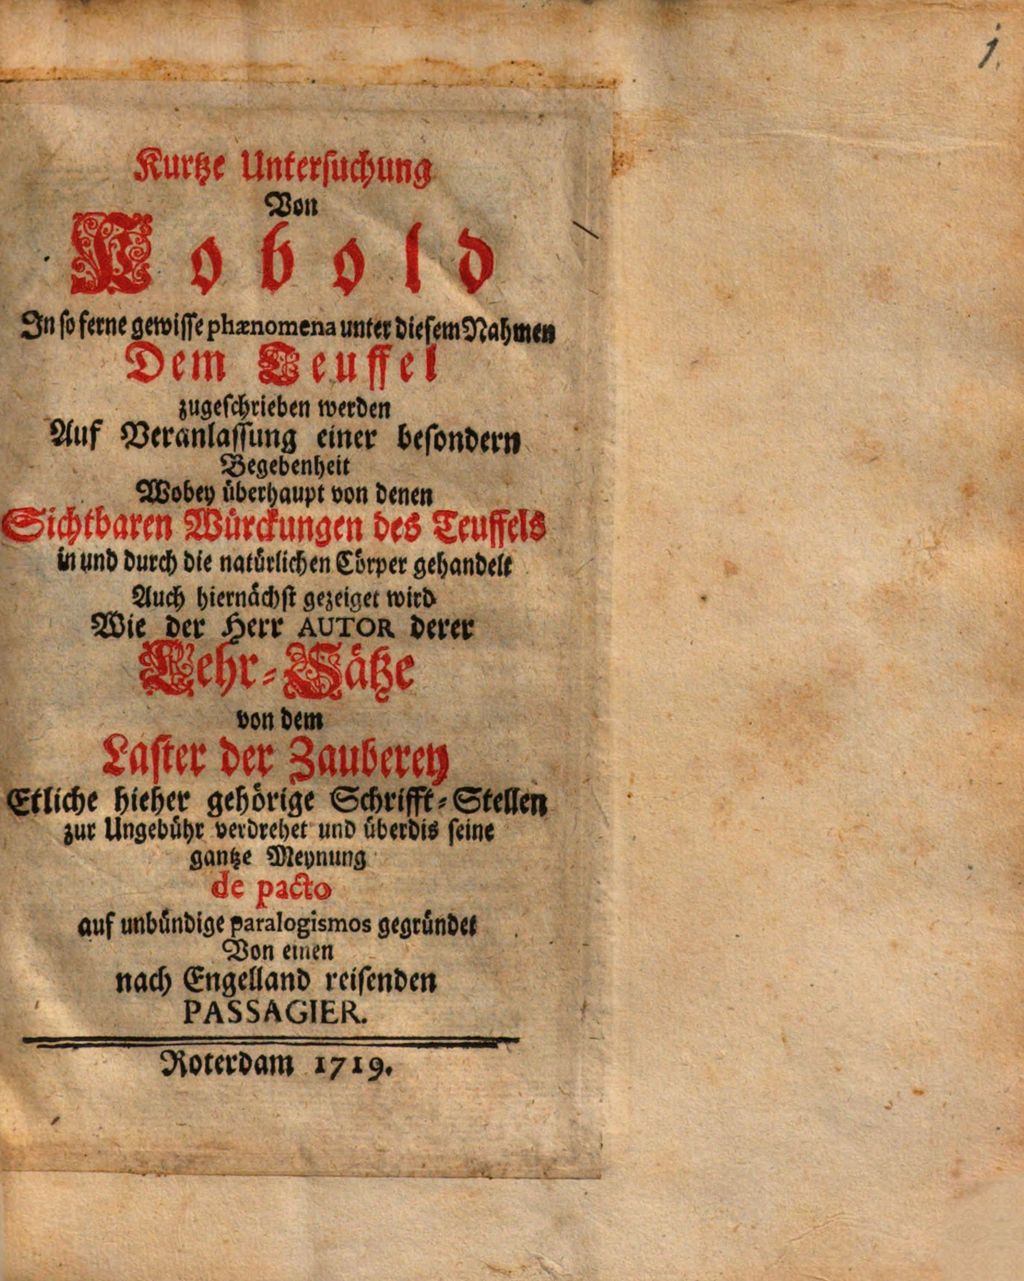 1.
Kurtze Untersuchung
Von
Kobold
In so ferne gewisse phænomena unter diesem Nahmen
Dem Teuffel
zugeschrieben werden
Auf Veranlassung einer besondern
Begebenheit
Wobey überhaupt von denen
Sichtbaren Würckungen des Teuffels
in und durch die natürlichen Cörper gehandelt
Auch hiernächst gezeiget wird
Wie der Herr AUTOR derer
Lehr-Sätze
von dem
Laster der Zauberey
Etliche hieher gehörige Schrifft-Stellen
zur Ungebühr verdrehet und überdis seine
gantze Meynung
de pacto
auf unbündige paralogismos gegründet
Von einen
nach Engelland reisenden
PASSAGIER.
Roterdam 1719.